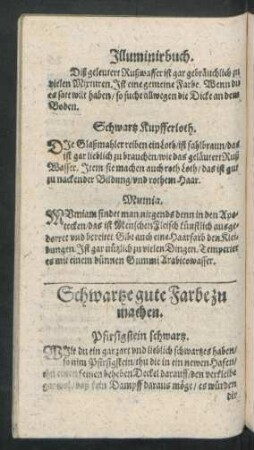 Illuminirbuch.
Diß geleutert Rußwasser ist gar gebräuchlich zu
vielen Mixturen. Ist eine gemeine Farbe. Wenn du
es satt wilt haben / so suche allwegen die Dicke an dem
Boden.
Schwartz Kupfferloth.
DIe Glaßmahler reiben ein Loth / ist fahlbraun / das
ist gar lieblich zu brauchen / wie das geläutert Ruß
Wasser. Item sie machen auch roth Loth / das ist gut
zu nackender Bildung / vnd rothem Haar.
Mumia.
MVmiam findet man nirgends denn in den Apo-
tecken / das ist Menschen Fleisch künstlich ausge-
dorret vnd bereitet Gibt auch eine Haarfarb den Klei-
dungen. Ist gar nützlich zu vielen Dingen. Temperier
es mit einem dünnen Gummi Arabicowasser.
Schwartze gute Farbe zu
machen.
Pfirsigstein schwartz.
WIlt du ein gar zart vnd lieblich schwartzes haben /
so nim Pfirsigstein / thu die in ein newen Hafen /
mit einem behebem Deckel darauff / den verkleibe
daß kein Dampff daraus möge / es würden
die